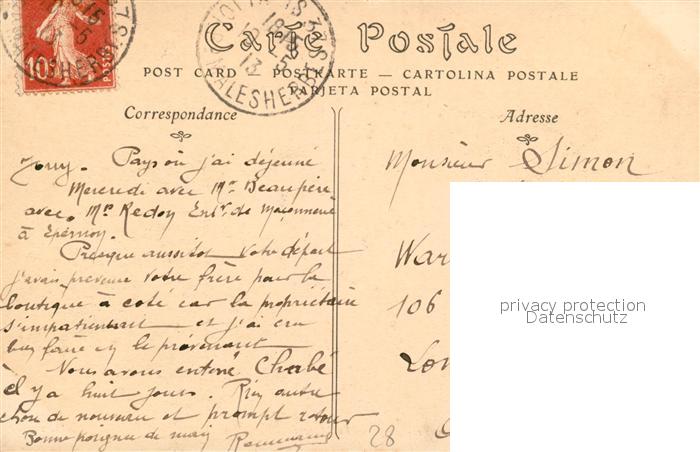 Carte Postale
POST CARD — POSTKARTE — CARTOLINA POSTALE
TARJETA POSTAL
Correspondance
Pays où j'ai déjeuné
Mercredi avec Mr Beaupère
avec Mr Redon Entr. de maçonnerie
à Epernay.
Presque aussitot votre départ
j'avais prévenu votre frère pour la
boutique à coté car la propriétaire
s'impatientait et j'ai cru
bien faire en le prévenant
Nous avons enterré Chabé
il y a huit jours. Rien autre
chose de nouveau et prompt retour
Bonne poignée de main
Adresse
Monsieur Simon
War
106
Lon
28
10
MALESHERBES
13
MALESHERBES
privacy protection
Datenschutz